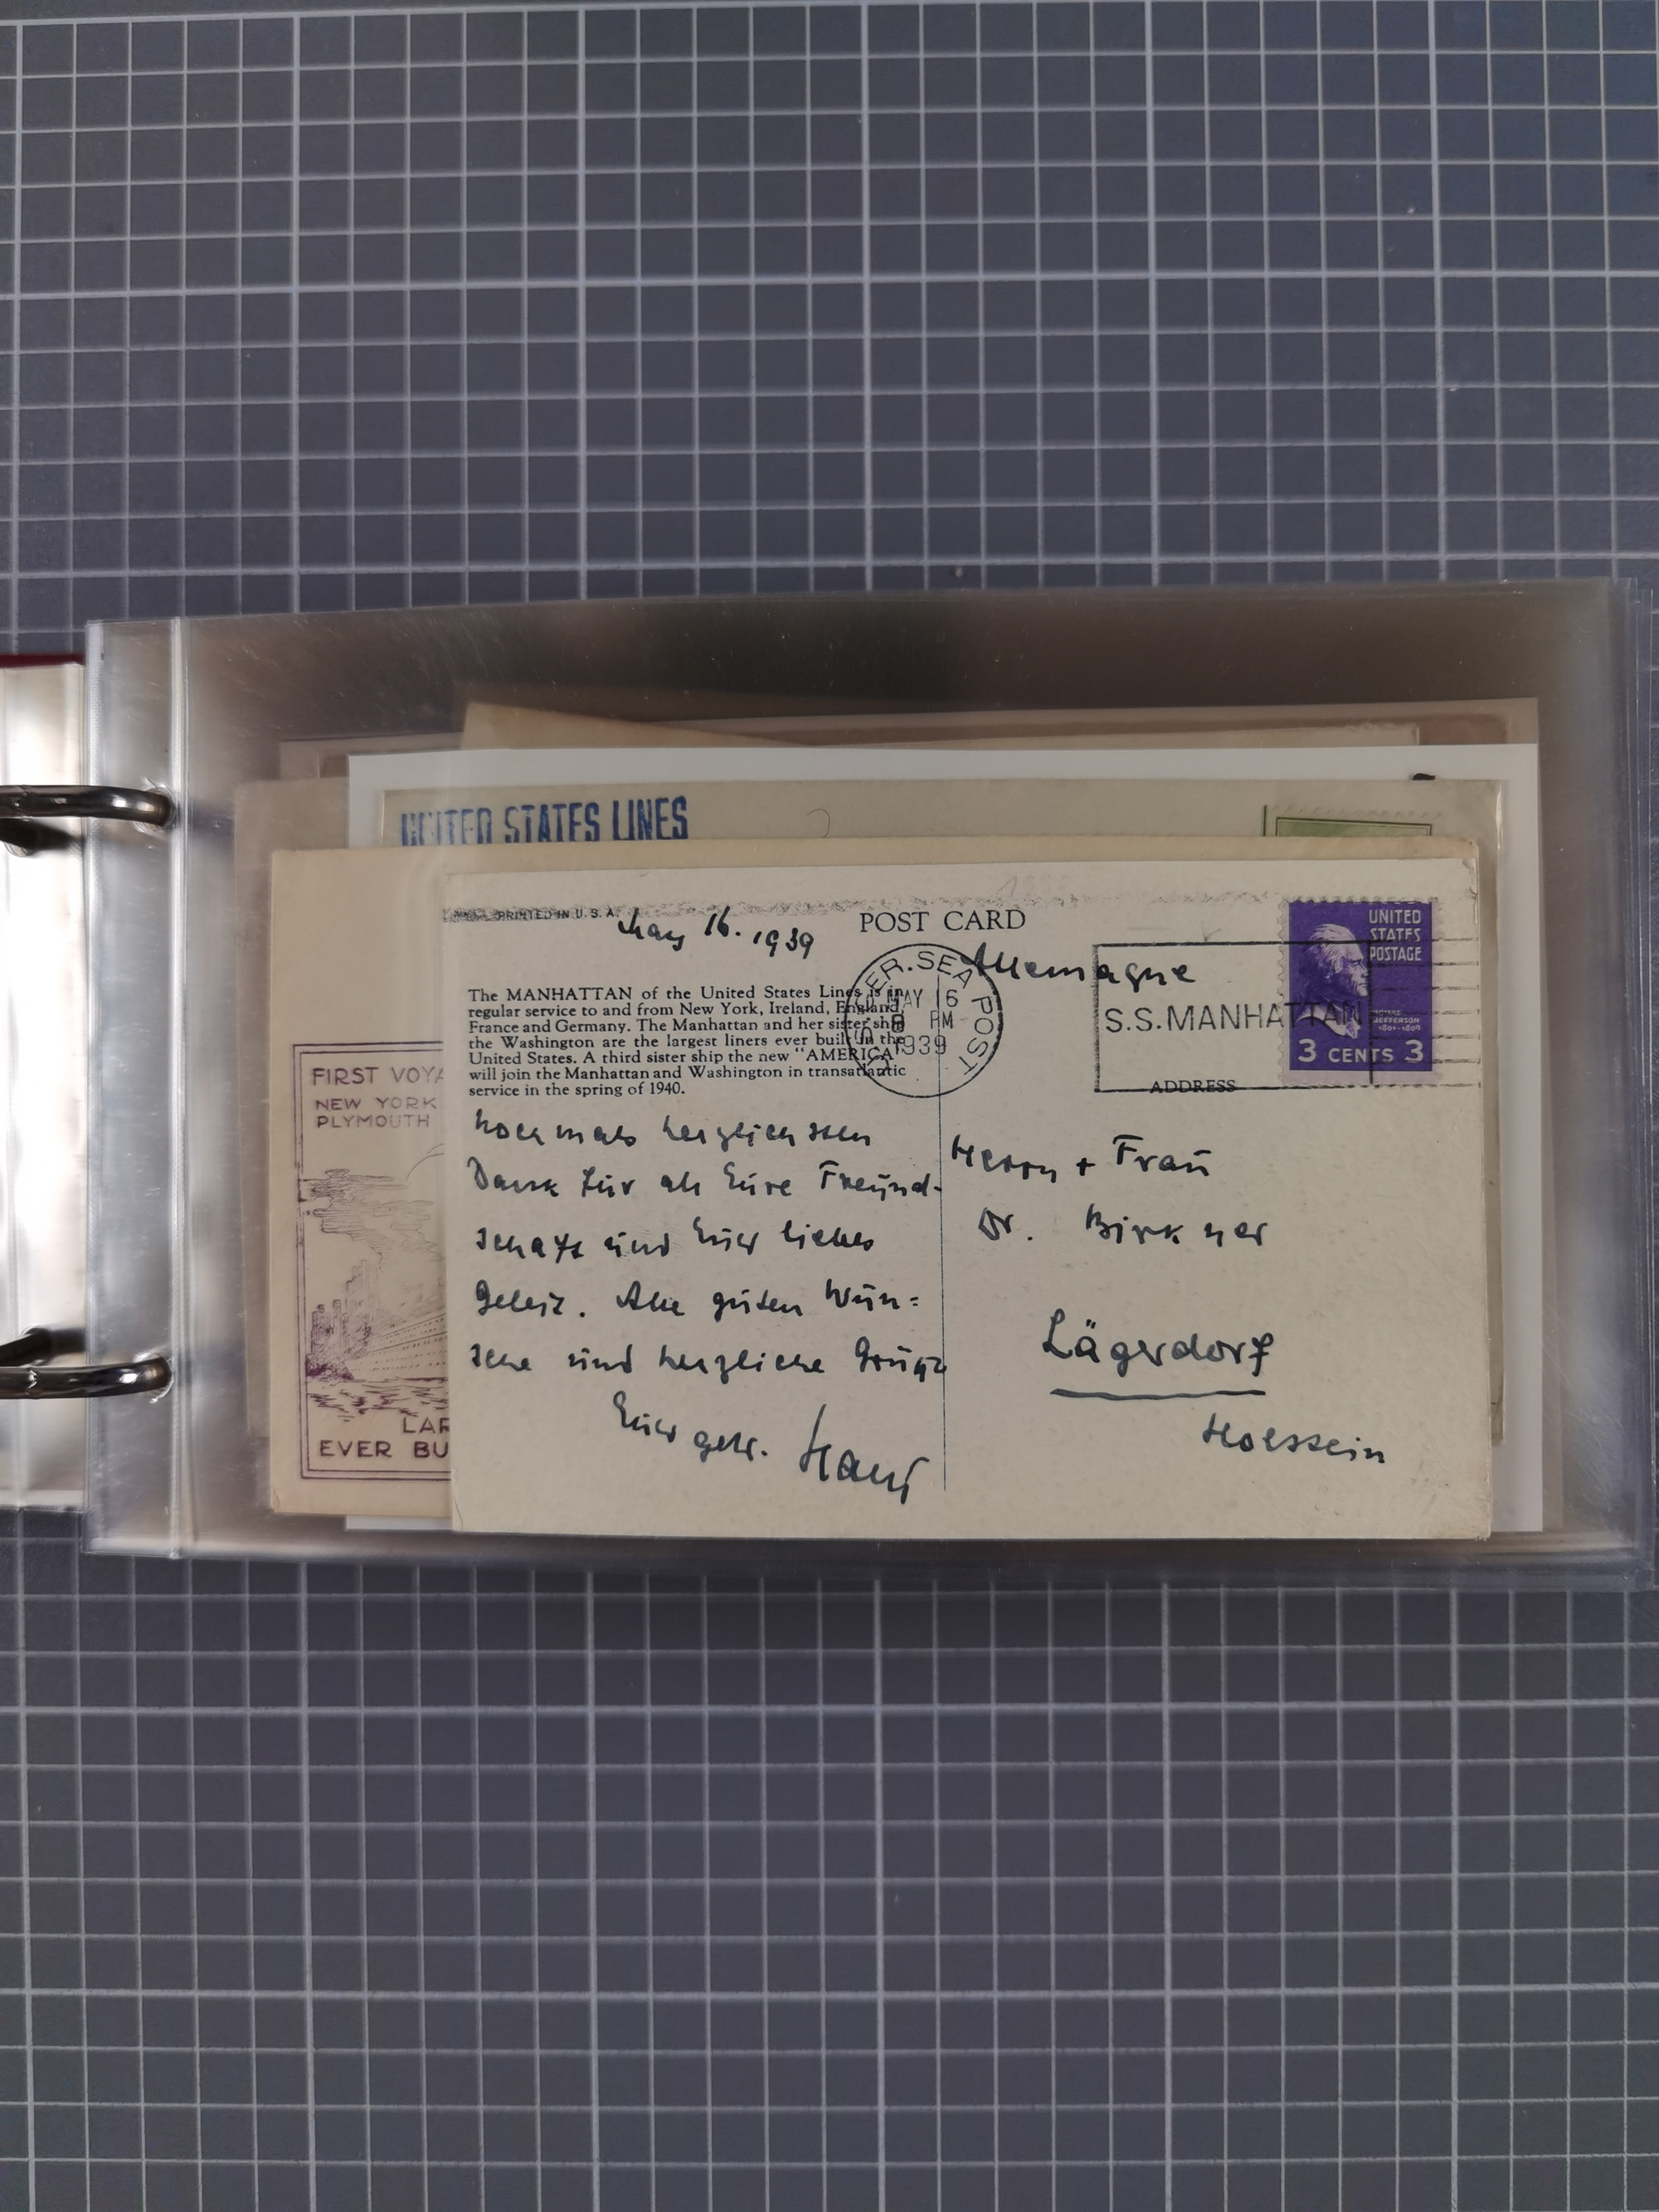 UNITED STATES LINES
PRINTED IN U.S.A.
May 16. 1939
POST CARD
Allemagne
The MANHATTAN of the United States Lines is in
regular service to and from New York, Ireland, England,
France and Germany. The Manhattan and her sister ship
the Washington are the largest liners ever built in the
United States. A third sister ship the new "AMERICA"
will join the Manhattan and Washington in transatlantic
service in the spring of 1940.
SEA POST
MAY 16
8 PM
1939
S.S. MANHATTAN
UNITED
STATES
POSTAGE
THOMAS
JEFFERSON
1801-1809
3 CENTS 3
ADDRESS
Nochmals herzlichsten
Dank für all Eure Freund-
schaft und Euer liebes
Geleit. Alle guten Wün=
sche und herzliche Grüße
Euer getr. Hans
Herrn + Frau
Dr. Birkner
Lägerdorf
Holstein
FIRST VOYA
NEW YORK
PLYMOUTH
LAR
EVER BU